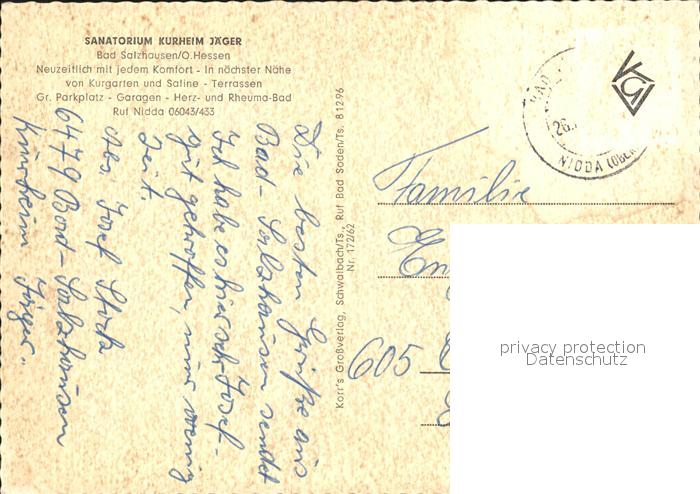 SANATORIUM KURHEIM JÄGER
Bad Salzhausen/O.Hessen
Neuzeitlich mit jedem Komfort - In nächster Nähe
von Kurgarten und Saline - Terrassen
Gr. Parkplatz - Garagen - Herz- und Rheuma-Bad
Ruf Nidda 06043/433
Die besten Grüße aus
Bad-Salzhausen sendet
Ich habe es hier sehr Josef.
gut getroffen, nur wenig
Zeit.
Abs. Josef
6479 Bad-Salzhausen
Kurheim Jäger.
Korr's Großverlag, Schwalbach/Ts., Ruf Bad Soden/Ts. 81296
Nr. 172/62
BAD
26.
NIDDA (OBER
KGV
Familie
En
605
privacy protection
Datenschutz